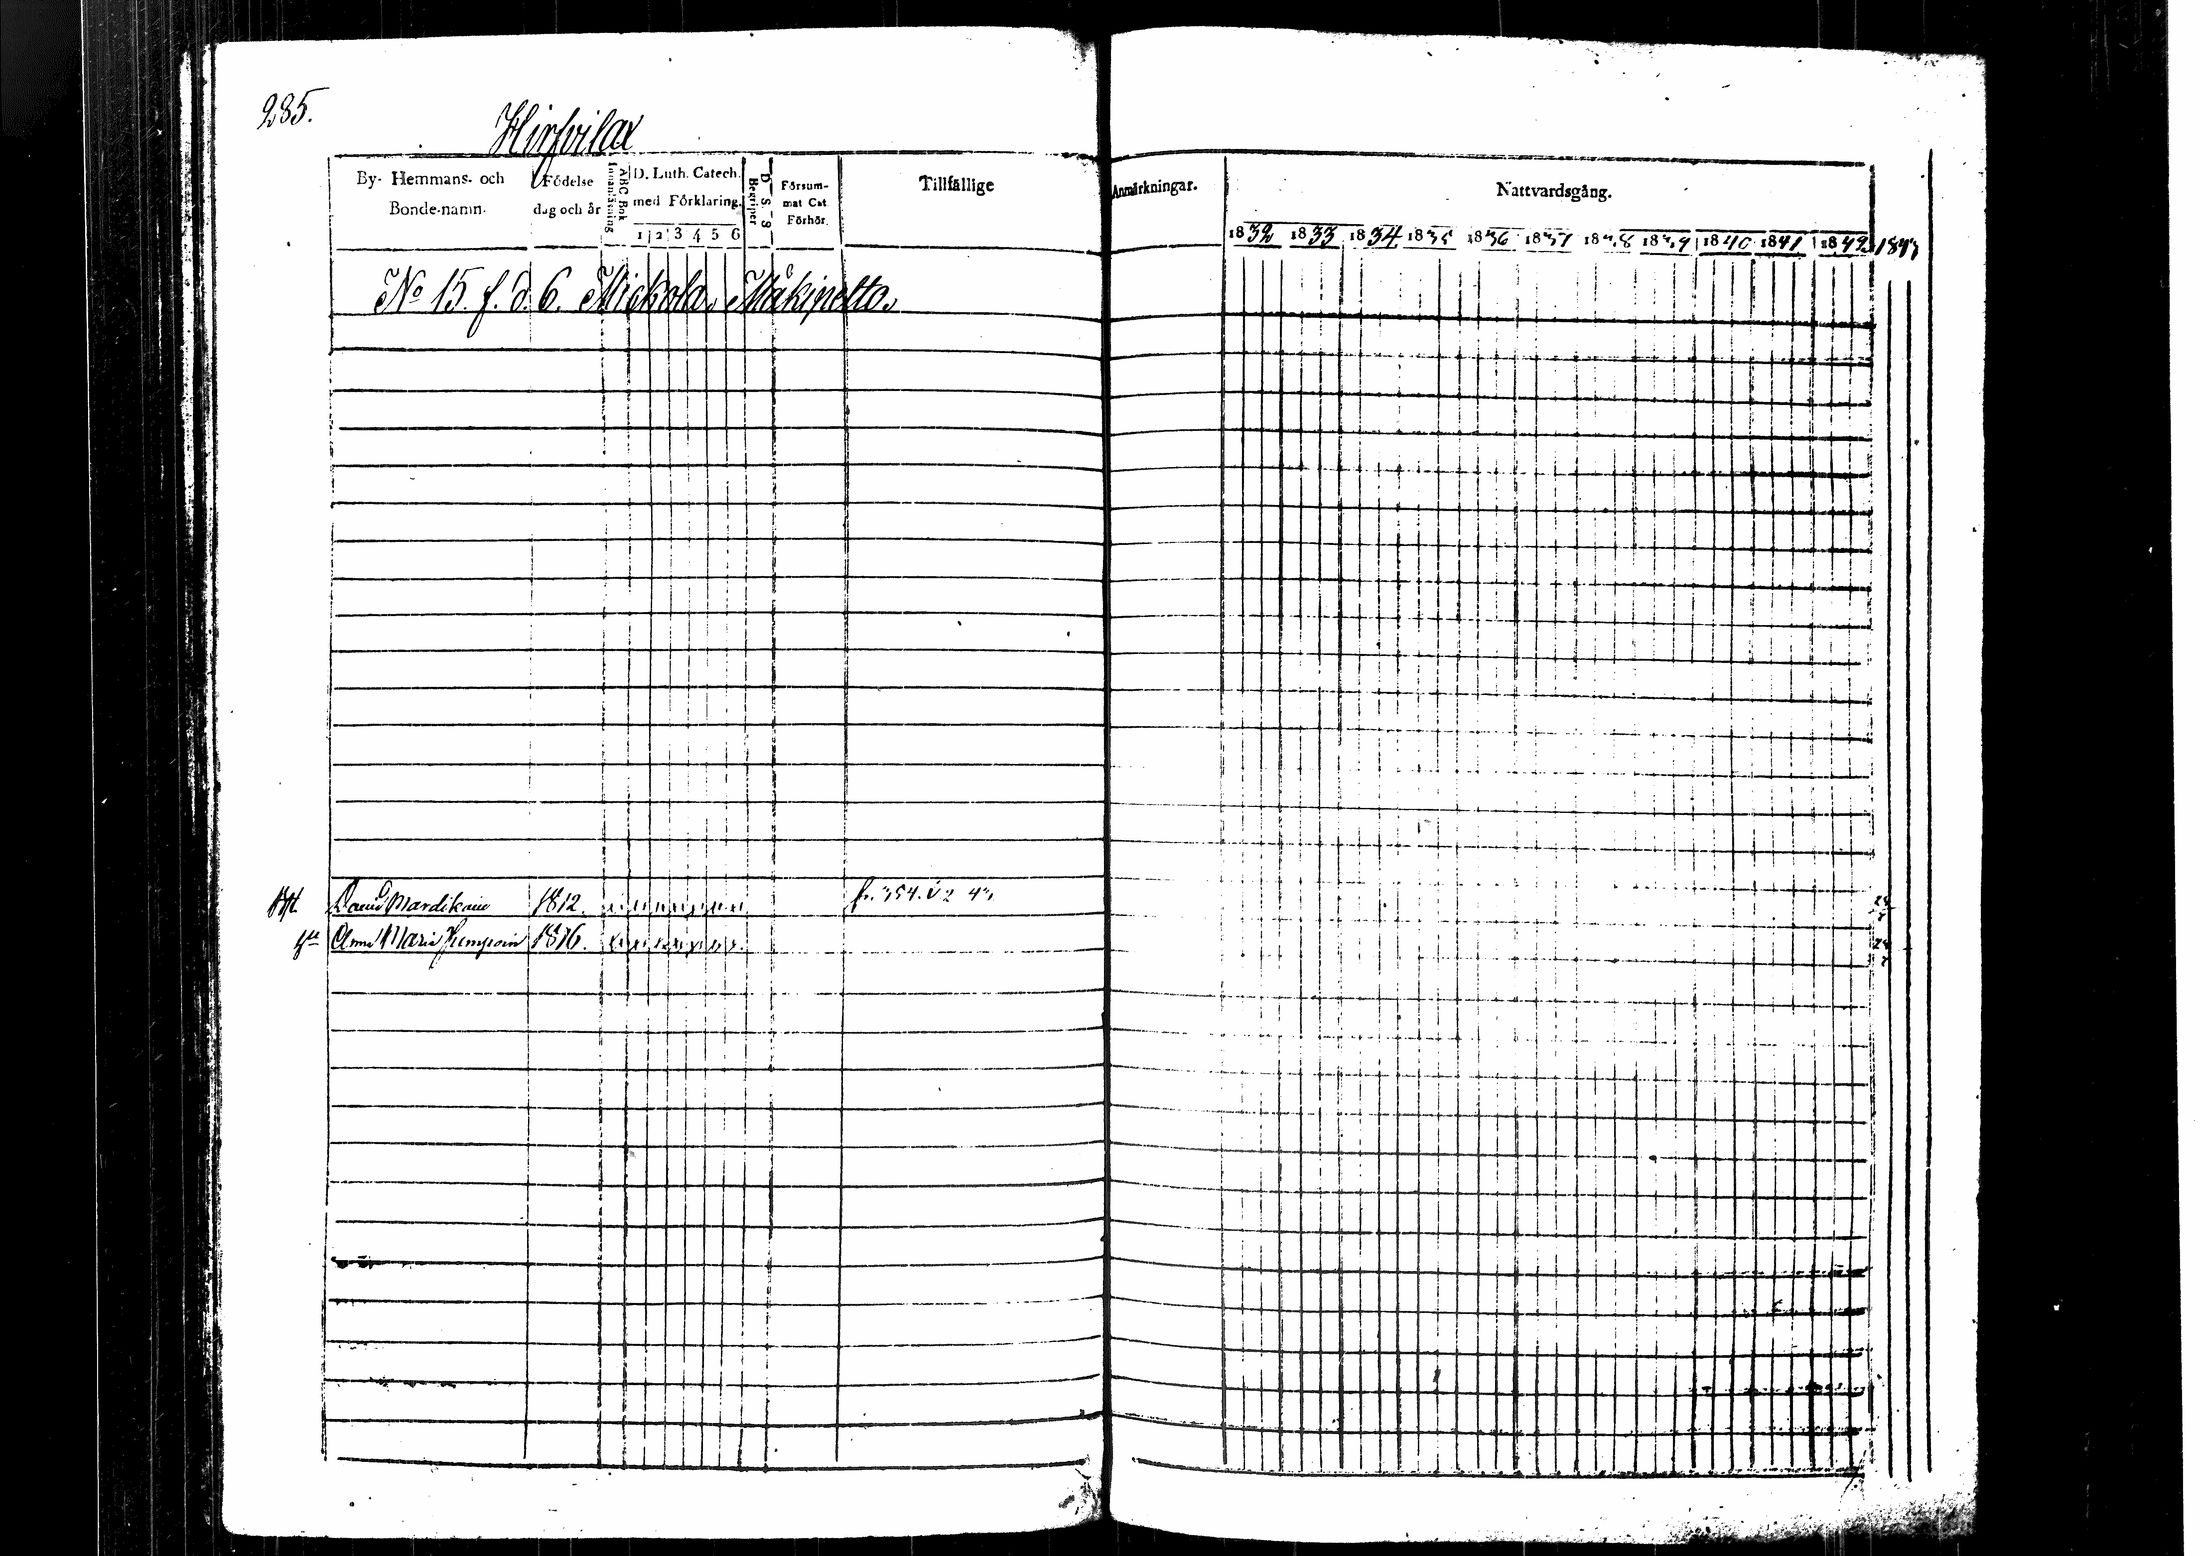 235.
Hirfvilax
By- Hemmans- och Bonde-namn.
Födelse dag och år
ABC Bok Innanläsning
D. Luth. Catech. med Förklaring.
1 2 3 4 5 6
D. S. S Begriper
Försum- mat Cat. Förhör.
Tillfällige
Anmärkningar.
Nattvardsgång.
1832 1833 1834 1835 1836 1837 1838 1839 1840 1841 1842 1843
No 15. f. d. 6. Mickola, Mäkipelto.
David 1812. fr. 354.
Anna Maria 1816.